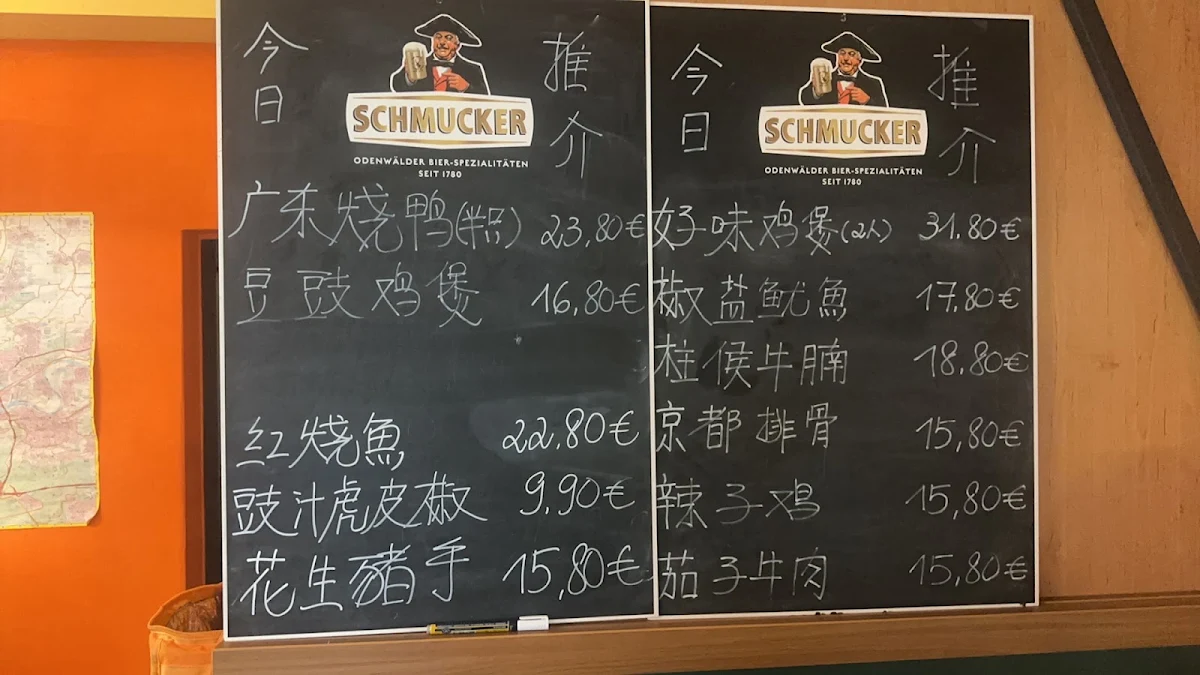 今日 推介
SCHMUCKER
ODENWÄLDER BIER-SPEZIALITÄTEN
SEIT 1780
广东烧鸭(半只) 23,80€
豆豉鸡煲 16,80€
红烧魚 22,80€
豉汁虎皮椒 9,90€
花生豬手 15,80€
今日 推介
SCHMUCKER
ODENWÄLDER BIER-SPEZIALITÄTEN
SEIT 1780
好味鸡煲(2人) 31.80€
椒盐鱿魚 17,80€
柱侯牛腩 18.80€
京都排骨 15,80€
辣子鸡 15,80€
茄子牛肉 15,80€